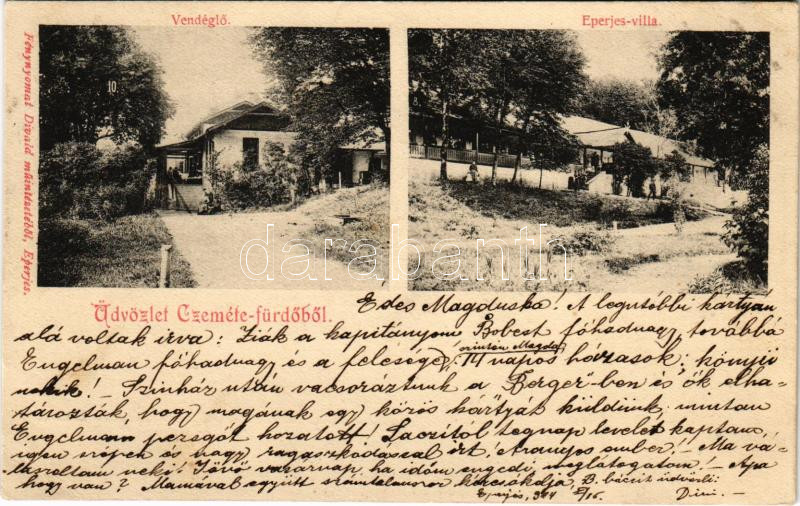 Vendéglő.
Eperjes-villa.
Fénynyomat Divald műintézetéből, Eperjes.
10
darabanth.com
Üdvözlet Czeméte-fürdőből.
Edes Magduska! A legutóbbi kártyán
alá voltak írva: Ziák a kapitányom Bobest főhadnagy, továbbá
szintén Magda
Engelman főhadnagy és a felesége, 14 napos házasok; könnyű
nekik! – Színház után vacsoráztunk a "Berger"-ben és ők elha-
tározták, hogy magának egy közös kártyát küldünk, miután
Engelman pezsgőt hozatott! Laczitól tegnap levelet kaptam,
igen szépen és nagy ragaszkodással írt. Aranyos ember! – Ma vá-
laszoltam neki. Jövő vasárnap, ha időm engedi, meglátogatom! – Apa
hogy van? Mamával együtt számtalanszor kézcsókolja, B. bácsit üdvözli
Eperjes, 904
Dini. –